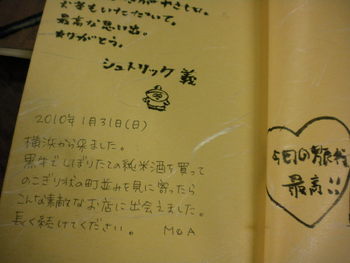 がやさしい。
お茶もいただいて。
最高な思い出。
ありがとう。
シュトリック 義
2010年1月31日(日)
横浜から来ました。
黒牛でしぼりたての純米酒を買って
のこぎり状の町並みを見に寄ったら
こんな素敵なお店に出会えました。
長く続けてください。 M&A
今日の旅
最高!!